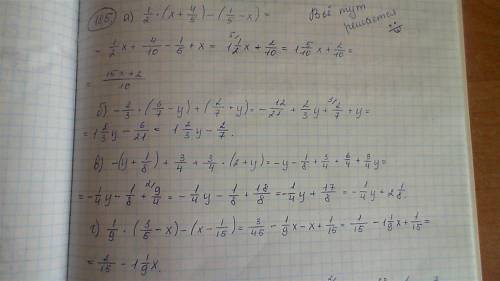 1185. а) 1/2 · (x + 4/5) − (1/5 − x) =
Всё тут решается
= 1/2x + 4/10 − 1/5 + x = 1 1/2x + 2/10 = 1 5/10x + 2/10 =
= (15x + 2)/10
б) −2/3 · (6/7 − y) + (2/7 + y) = −12/21 + 2/3y + 2/7 + y =
= 1 2/3y − 6/21 = 1 2/3y − 2/7.
в) −(y + 1/8) + 3/4 + 3/4 · (2 + y) = −y − 1/8 + 3/4 + 6/4 + 3/4y =
= −1/4y − 1/8 + 9/4 = −1/4y − 1/8 + 18/8 = −1/4y + 17/8 = −1/4y + 2 1/8.
г) 1/9 · (3/5 − x) − (x − 1/15) = 3/45 − 1/9x − x + 1/15 = 1/15 − 1 1/9x + 1/15 =
= 2/15 − 1 1/9x.